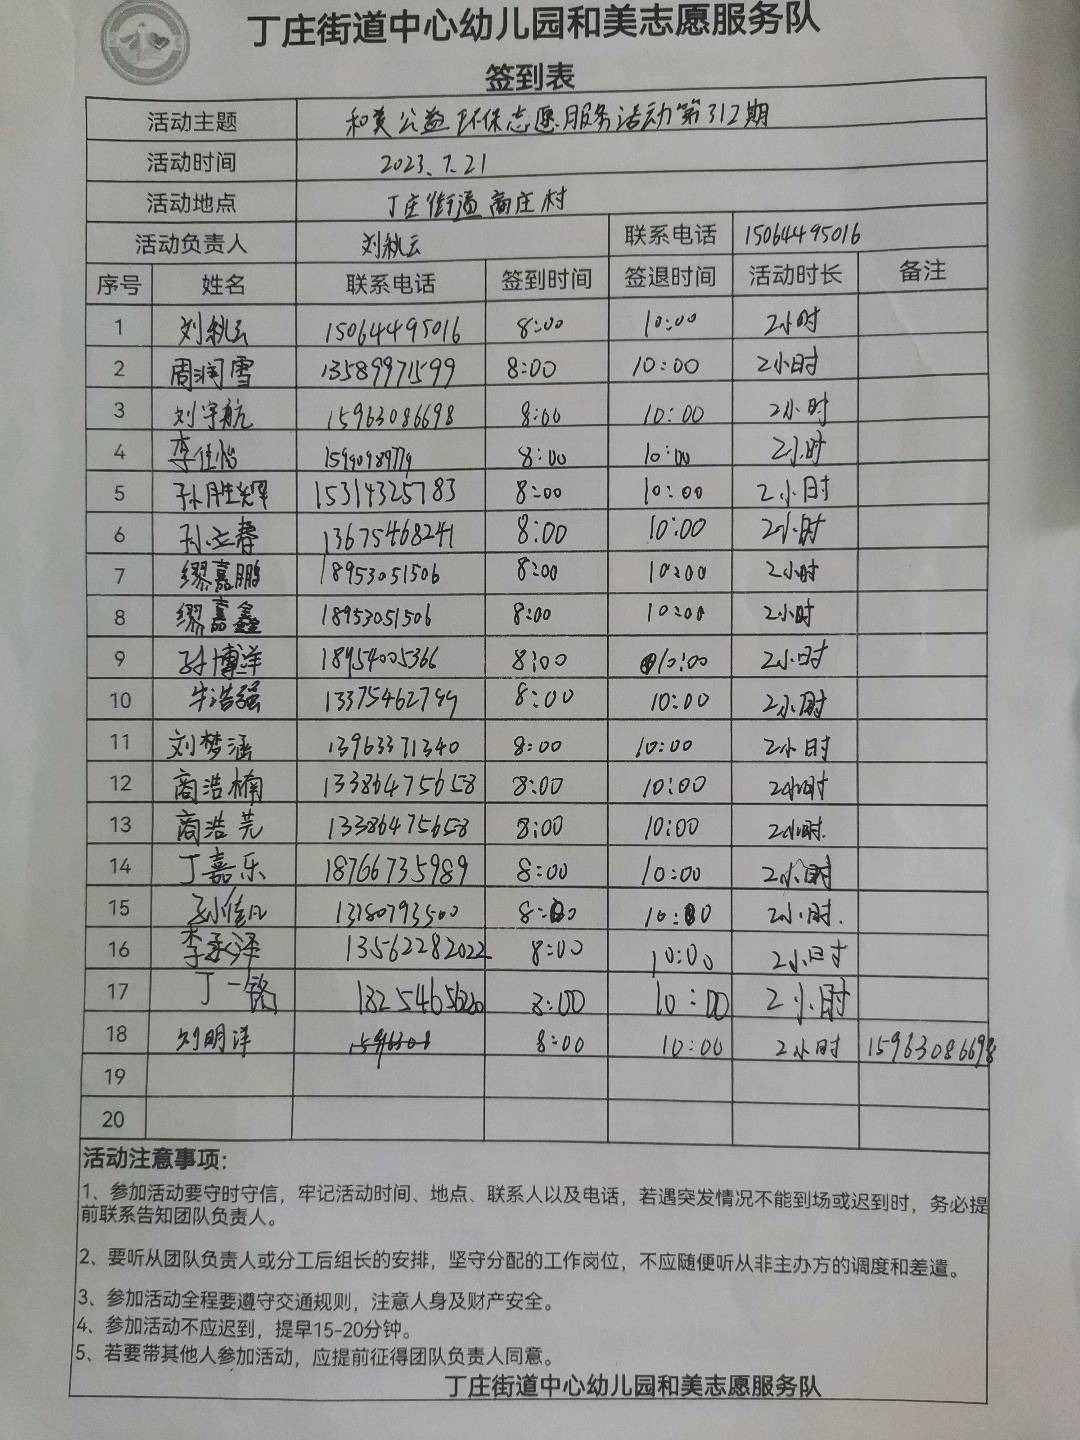 丁庄街道中心幼儿园和美志愿服务队
签到表
活动主题 和美公益环保志愿服务活动第312期
活动时间 2023.7.21
活动地点 丁庄街道商庄村
活动负责人 刘秋云 联系电话 15064495016
序号 姓名 联系电话 签到时间 签退时间 活动时长 备注
1 刘秋云 15064495016 8:00 10:00 2小时
2 周润雪 13589971599 8:00 10:00 2小时
3 刘宇航 15963086698 8:00 10:00 2小时
4 李佳怡 8:00 10:00 2小时
5 孙胜辉 15314325783 8:00 10:00 2小时
6 孙立春 13675468241 8:00 10:00 2小时
7 缪嘉鹏 18953051506 8:00 10:00 2小时
8 缪嘉鑫 18953051506 8:00 10:00 2小时
9 孙博洋 18954005366 8:00 10:00 2小时
10 牛浩强 13375462799 8:00 10:00 2小时
11 刘梦涵 13963371340 8:00 10:00 2小时
12 商浩楠 13386475658 8:00 10:00 2小时
13 商浩芫 13386475658 8:00 10:00 2小时.
14 丁嘉乐 18766735989 8:00 10:00 2小时
15 孙佳凡 13780793500 8:00 10:00 2小时.
16 李承泽 13562282022 8:00 10:00 2小时
17 丁一铭 18254656220 8:00 10:00 2小时
18 刘明洋 8:00 10:00 2小时 15963086698
19
20
活动注意事项：
1、参加活动要守时守信，牢记活动时间、地点、联系人以及电话，若遇突发情况不能到场或迟到时，务必提
前联系告知团队负责人。
2、要听从团队负责人或分工后组长的安排，坚守分配的工作岗位，不应随便听从非主办方的调度和差遣。
3、参加活动全程要遵守交通规则，注意人身及财产安全。
4、参加活动不应迟到，提早15-20分钟。
5、若要带其他人参加活动，应提前征得团队负责人同意。
丁庄街道中心幼儿园和美志愿服务队